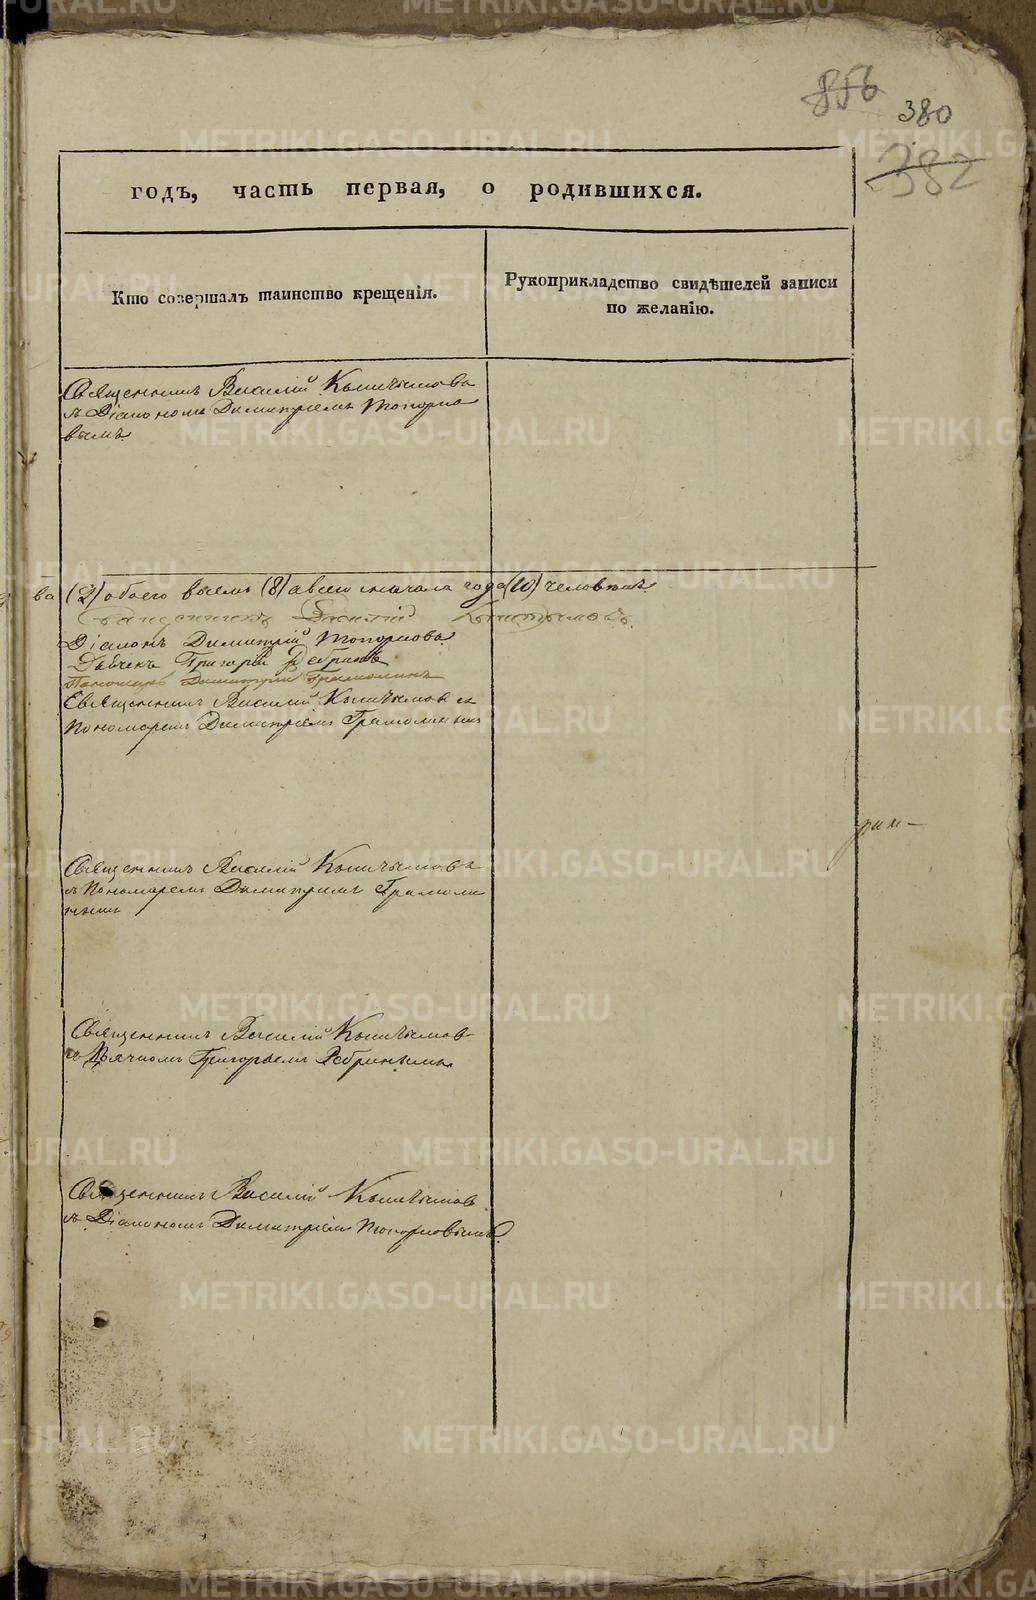 856
380
382
годъ, часть первая, о родившихся.
Кто совершалъ таинство крещенія.
Рукоприкладство свидѣтелей записи
по желанію.
Священникъ Василій
съ Діакономъ Димитріемъ Топорко
вымъ
ва (2) обоего восемь (8) а всего сначала года (10) человѣкъ
Священникъ Василій
Діаконъ Димитрій Топорковъ
Дьячекъ Григорій Ребринъ
Пономарь Димитрій Грамолинъ
Священникъ Василій съ
Пономаремъ Димитріемъ Грамолинымъ
Священникъ Василій
съ Пономаремъ Димитріемъ Грамоли
нымъ
Священникъ Василій
съ Дьячкомъ Григорьемъ Ребринымъ
Священникъ Василій
съ Діакономъ Димитріемъ Топорковымъ
METRIKI.GASO-URAL.RU